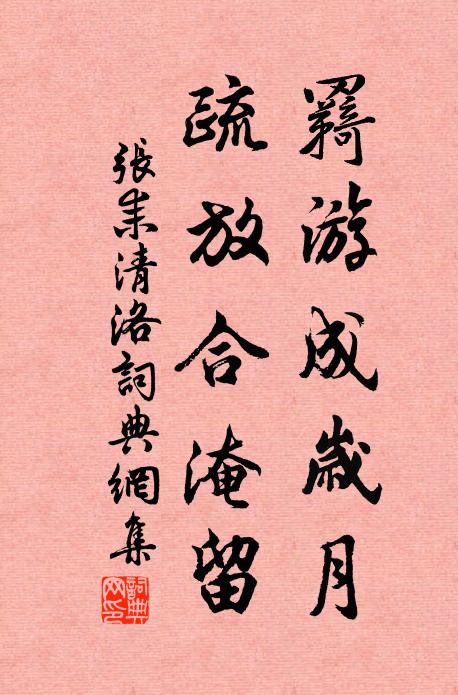 羇游成歲月
疏放合淹留
張耒清洛詞典網集
詞典網印